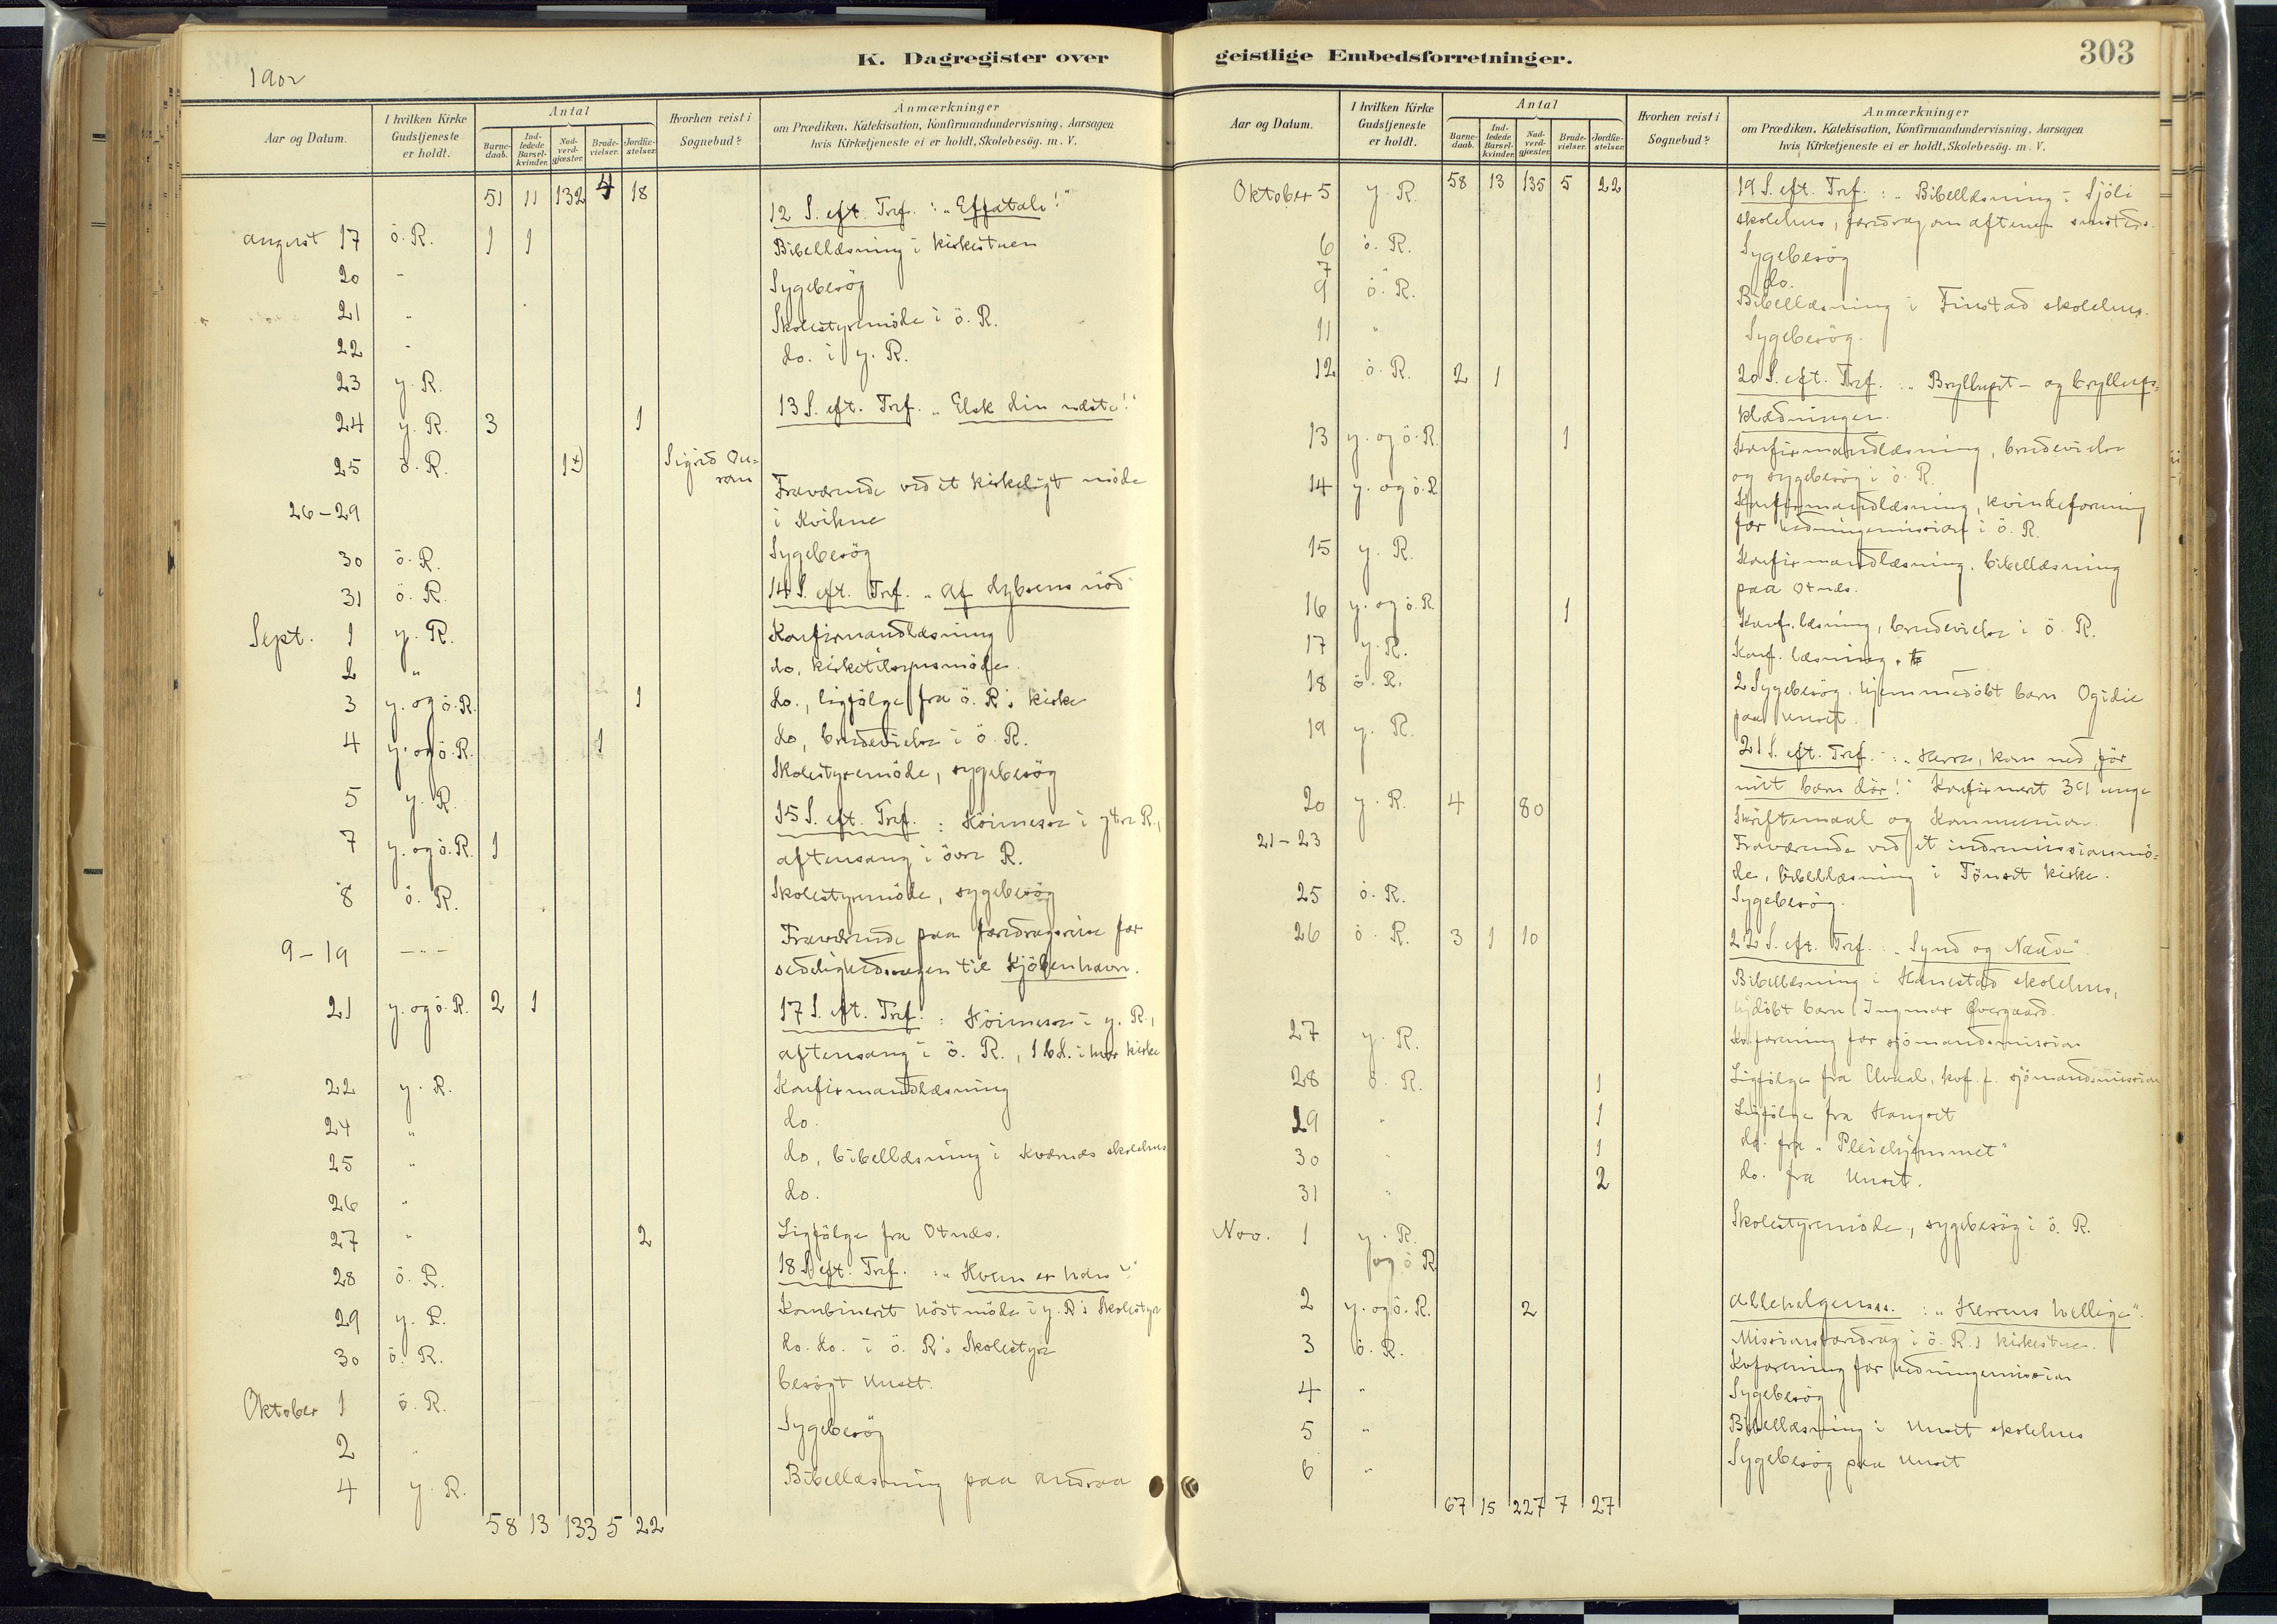 1902
K. Dagregister over
Aar og Datum.
I hvilken Kirke Gudstjeneste er holdt.
Antal
Barnedaab.
Indledede Barselkvinder.
Nadverdgjæster.
Brudevielser.
Jordfæstelser.
Hvorhen reist i Sognebud?
Anmærkninger
om Prædiken, Katekisation, Konfirmandundervisning, Aarsagen
hvis Kirketjeneste ei er holdt, Skolebesög. m. V.
51 11 132 4 18
12 S. eft. Tref. : "Effatale!"
august 17 ö. R. 1 1 Bibellæsning i kirkestuen
20 - Sygebesög
21 " Skolestyremöde i ö. R.
22 - do. i y. R.
23 y. R.
24 y. R. 3 1 13 S. eft. Tref. "Elsk din næste!"
25 ö. R. 1 Sigrid
26-29 Fraværende ved et kirkeligt möde
i Kvikne
30 ö. R. Sygebesög
31 ö. R. 14 S. eft. Tref. "af dybsens nöd
Sept. 1 y. R. Konfirmandlæsning
2 " do, kirketilsynsmöde.
3 y. og ö. R. 1 do., ligfölge fra ö. R's kirke
4 y. og ö. R. 1 do, brudevielse i ö. R.
5 y. R. Skolestyremöde, sygebesög
7 y. og ö. R. 1 15 S. eft. Tref. : Höimesse i ytre R.,
aftensang i övre R.
8 ö. R. Skolestyremöde, sygebesög
9-19 -"- Fraværende paa foredragsreise for
sedelighedssagen til Kjöbenhavn.
21 y. og ö. R. 2 1 17 S. eft. Tref. : Höimesse i y. R.,
aftensang i ö. R., 1 bd. i hver kirke
22 y. R. Konfirmandlæsning
24 " do.
25 " do, bibellæsning i Kværnes skolehus
26 " do.
27 " 2 Ligfölge fra Otnes.
28 ö. R. 18 S eft. Tref. : "Hvem er han?"
29 y. R. Kombineret höstmöde i y. R's Skolestyre
30 ö. R. do. do. i ö. R's Skolestyre
Oktober 1 ö. R. besögt Unset.
2 " Sygebesög
4 y. R. Bibellæsning paa Andraa
58 13 133 5 22
geistlige Embedsforretninger.
303
Aar og Datum.
I hvilken Kirke Gudstjeneste er holdt.
Antal
Barnedaab.
Indledede Barselkvinder.
Nadverdgjæster.
Brudevielser.
Jordfæstelser.
Hvorhen reist i Sognebud?
Anmærkninger
om Prædiken, Katekisation, Konfirmandundervisning, Aarsagen
hvis Kirketjeneste ei er holdt, Skolebesög. m. V.
58 13 135 5 22
Oktober 5 y. R. 19 S. eft. Tref. : "Bibellæsning i Sjöli
skolehus, foredrag om aftenen smsteds.
6 ö. R. Sygebesög
7 " do.
9 ö. R. Bibellæsning i Finstad skolehus.
11 " Sygebesög.
12 ö. R. 2 1 20 S. eft. Tref. : "Bryllupet - og bryllups-
klædningen.
13 y. og ö. R. 1 Konfirmandlæsning, brudevielse
og sygebesög i ö. R.
14 y. og ö. R Konfirmandlæsning, kvindeforening
for hedningemission i ö. R.
15 y. R. Konfirmandlæsning, bibellæsning
paa Otnes.
16 y. og ö. R 1 Konf. læsning, brudevielse i ö. R.
17 y. R. Konf. læsning.
18 ö. R. 2 Sygebesög, hjemmedöbt barn Ogidie
paa Unset.
19 y. R. 21 S. eft. Tref. : "Herre, kom ned för
mit barn dör!" Konfirmeret 39 unge
20 y. R. 4 80 Skriftemaal og Kommunion.
21-23 Fraværende ved et indremissionsmö-
de, bibellæsning i Tönset kirke.
25 ö. R. Sygebesög.
26 ö. R. 3 1 10 22 S. eft. Tref. : "Synd og Naade".
Bibellæsning i Hanestad skolehus,
hjdöbt barn Ingmar Övergaard.
27 y. R. Kv. forening for sjömandsmission
28 ö. R. 1 Ligfölge fra Elvaal, kvf. f. sjömandsmission
29 " 1 Ligfölge fra Hangset
30 " 1 do. fra "Pleiehjemmet"
31 " 2 do. fra Unset.
Nov. 1 y. R. Skolestyremöde, sygebesög i ö. R.
og ö R
2 y. og ö. R. 2 Allehelgenss. : "Herrens hellige".
3 ö. R. Missionsforedrag i ö. R.s kirkestue.
4 " Kvforening for hedningemission
Sygebesög
5 " Bibellæsning i Unset skolehus
6 " Sygebesög paa Unset
67 15 227 7 27